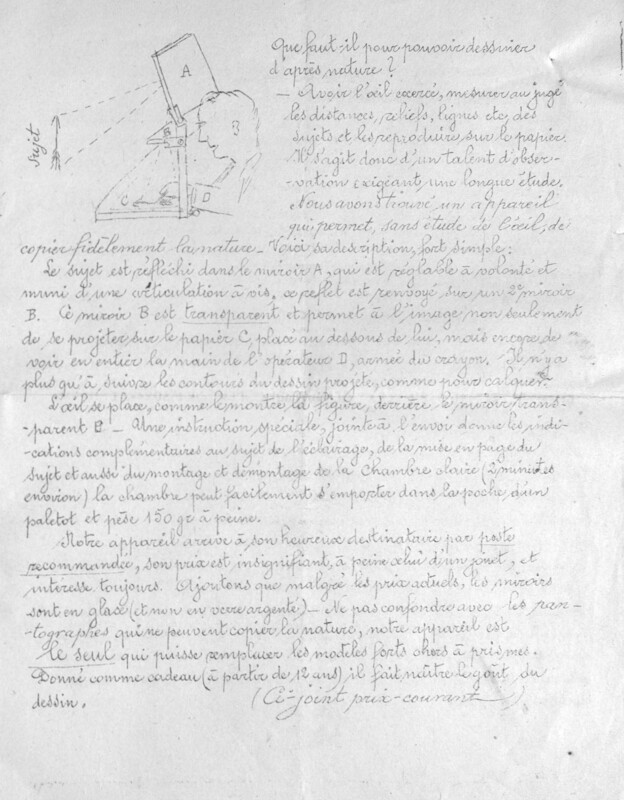 Que faut-il pour pouvoir dessiner
d'après nature ?
— Avoir l'œil exercé, mesurer au jugé
les distances, reliefs, lignes etc, des
sujets et les reproduire sur le papier.
Il s'agit donc d'un talent d'obser-
-vation exigeant une longue étude.
Nous avons trouvé un appareil
qui permet, sans étude de l'œil, de
copier fidèlement la nature — Voici sa description, fort simple :
Le sujet est réfléchi dans le miroir A, qui est réglable à volonté et
muni d'une articulation à vis. ce reflet est renvoyé sur un 2e miroir
B. Ce miroir B est transparent et permet à l'image non seulement
de se projeter sur le papier C, placé au dessous de lui, mais encore de
voir en entier la main de l'opérateur D, armée du crayon. Il n'y a
plus qu'à suivre les contours du dessin projeté, comme pour calquer.
L'œil se place, comme le montre la figure, derrière le miroir trans-
-parent B — Une instruction spéciale, jointe à l'envoi donne les indi-
-cations complémentaires au sujet de l'éclairage, de la mise en page du
sujet et aussi du montage et démontage de la Chambre claire (2 minutes
environ) la chambre peut facilement s'emporter dans la poche d'un
paletot et pèse 150 gr à peine.
Notre appareil arrive à son heureux destinataire par poste
recommandée, son prix est insignifiant, à peine celui d'un jouet, et
intéresse toujours. Ajoutons que malgré les prix actuels, les miroirs
sont en glace (et non en verre argenté) — Ne pas confondre avec les pan-
-tographes qui ne peuvent copier la nature, notre appareil est
le seul qui puisse remplacer les modèles forts chers à prismes.
Donné comme cadeau (à partir de 12 ans) il fait naître le goût du
dessin.
(Ci-joint prix-courant)
Sujet
A
B
C
D